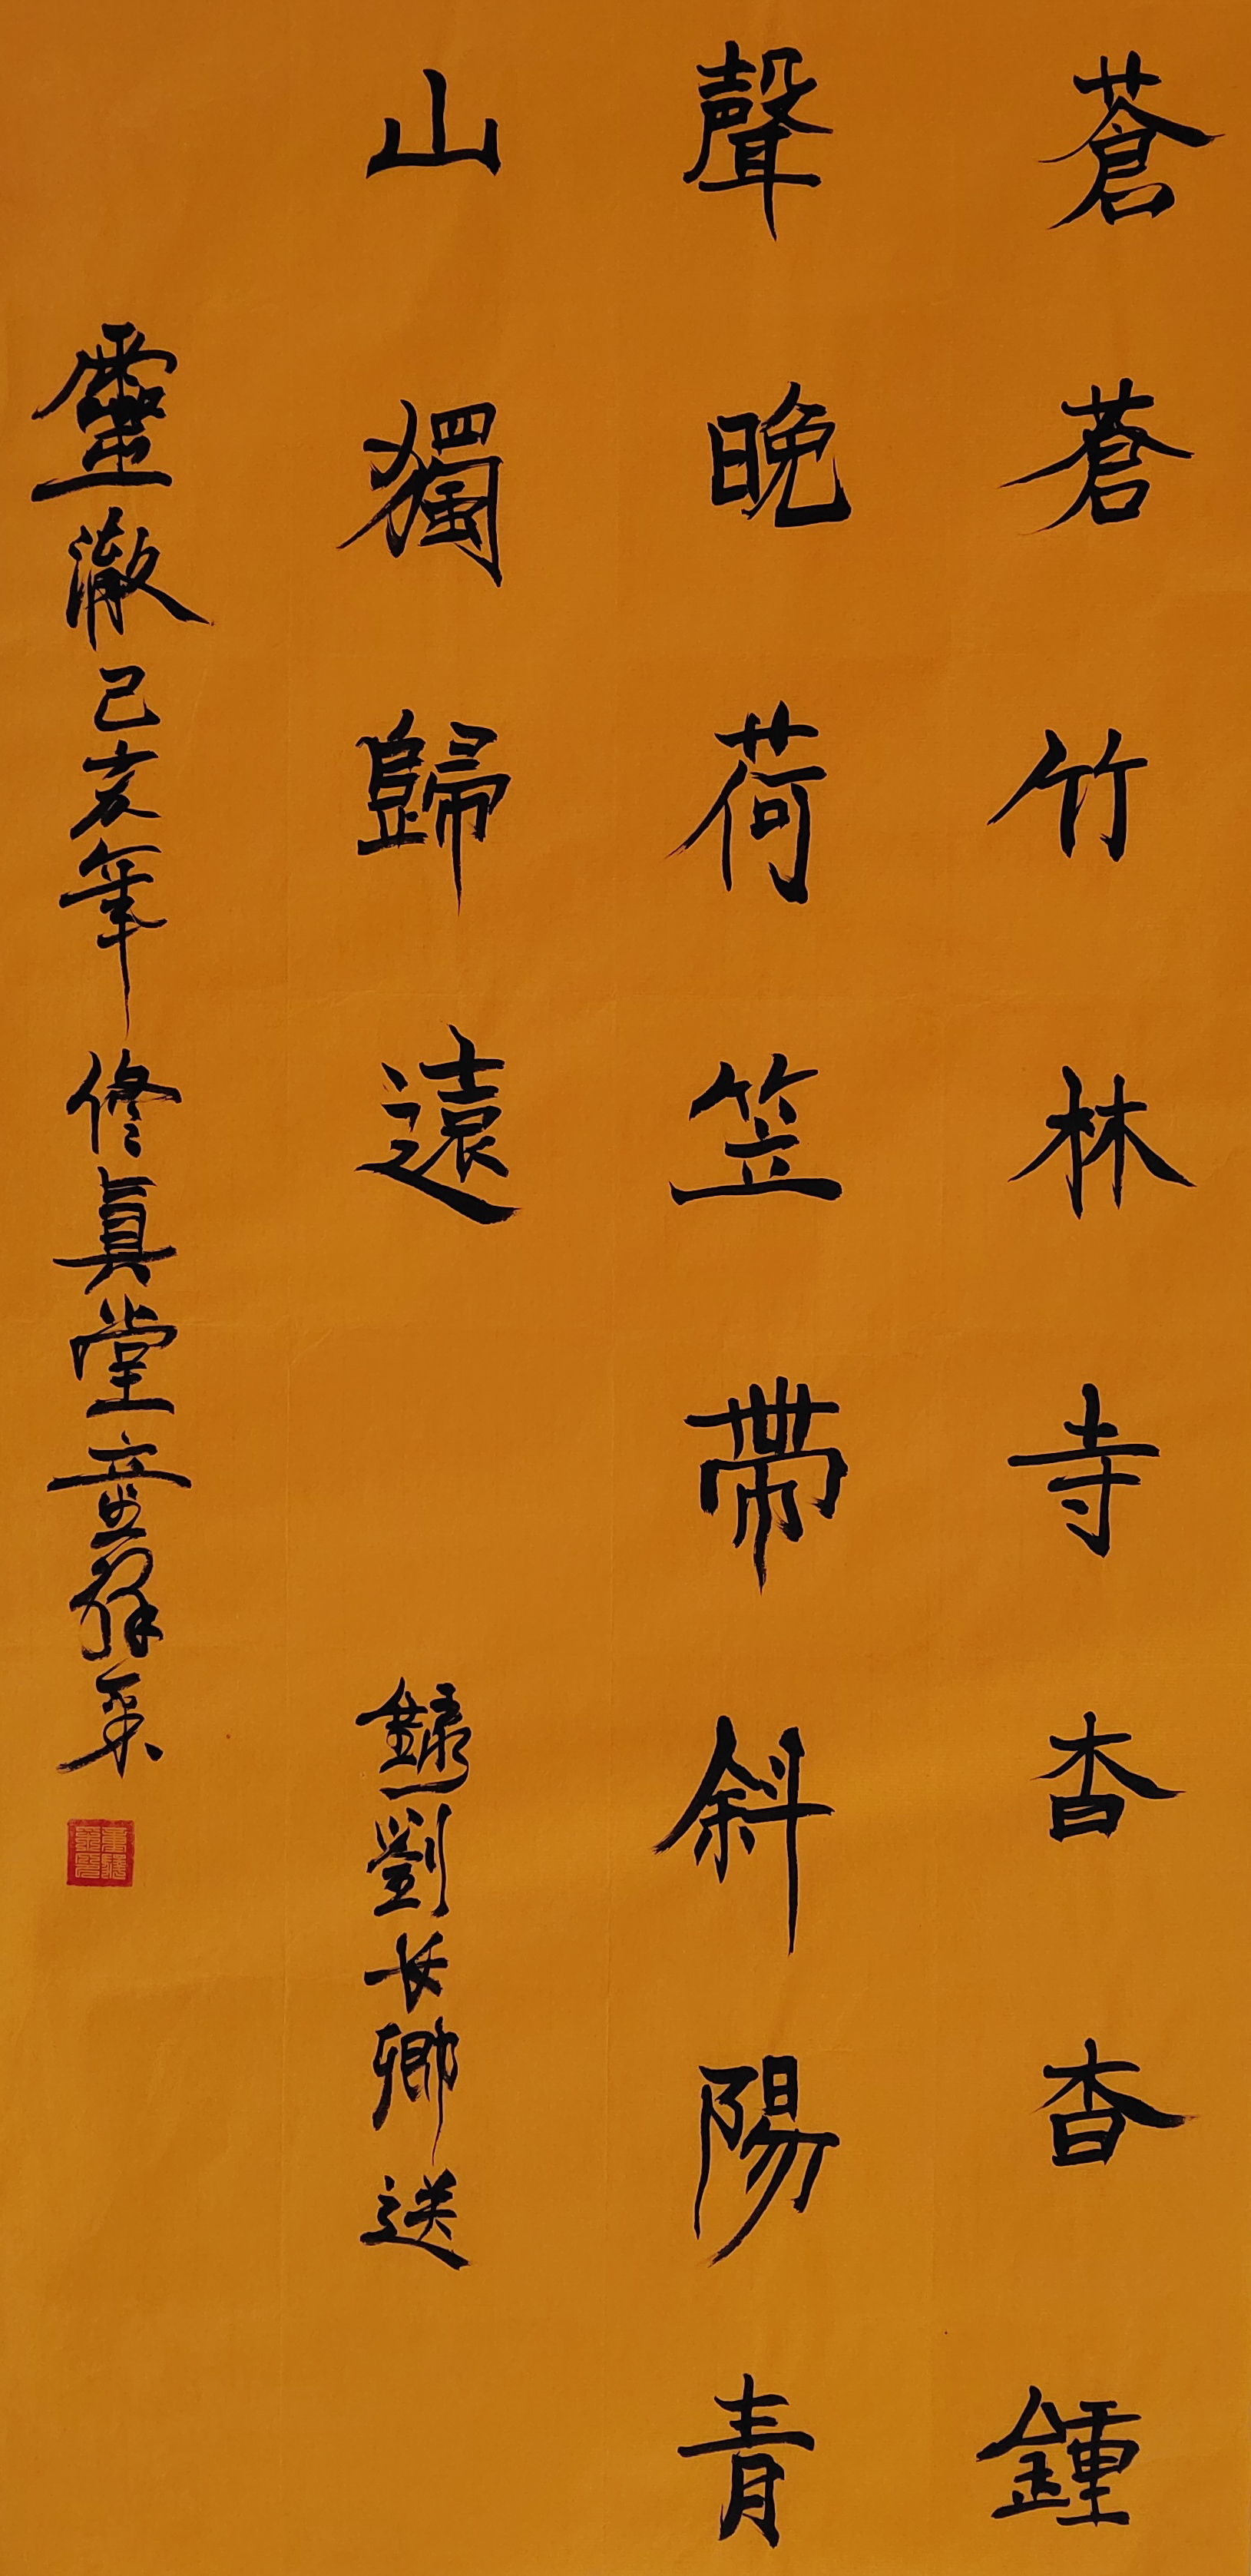 蒼蒼竹林寺杳杳鍾
聲晚荷笠帶斜陽青
山獨歸遠 錄劉長卿送
靈澈己亥年修真堂童